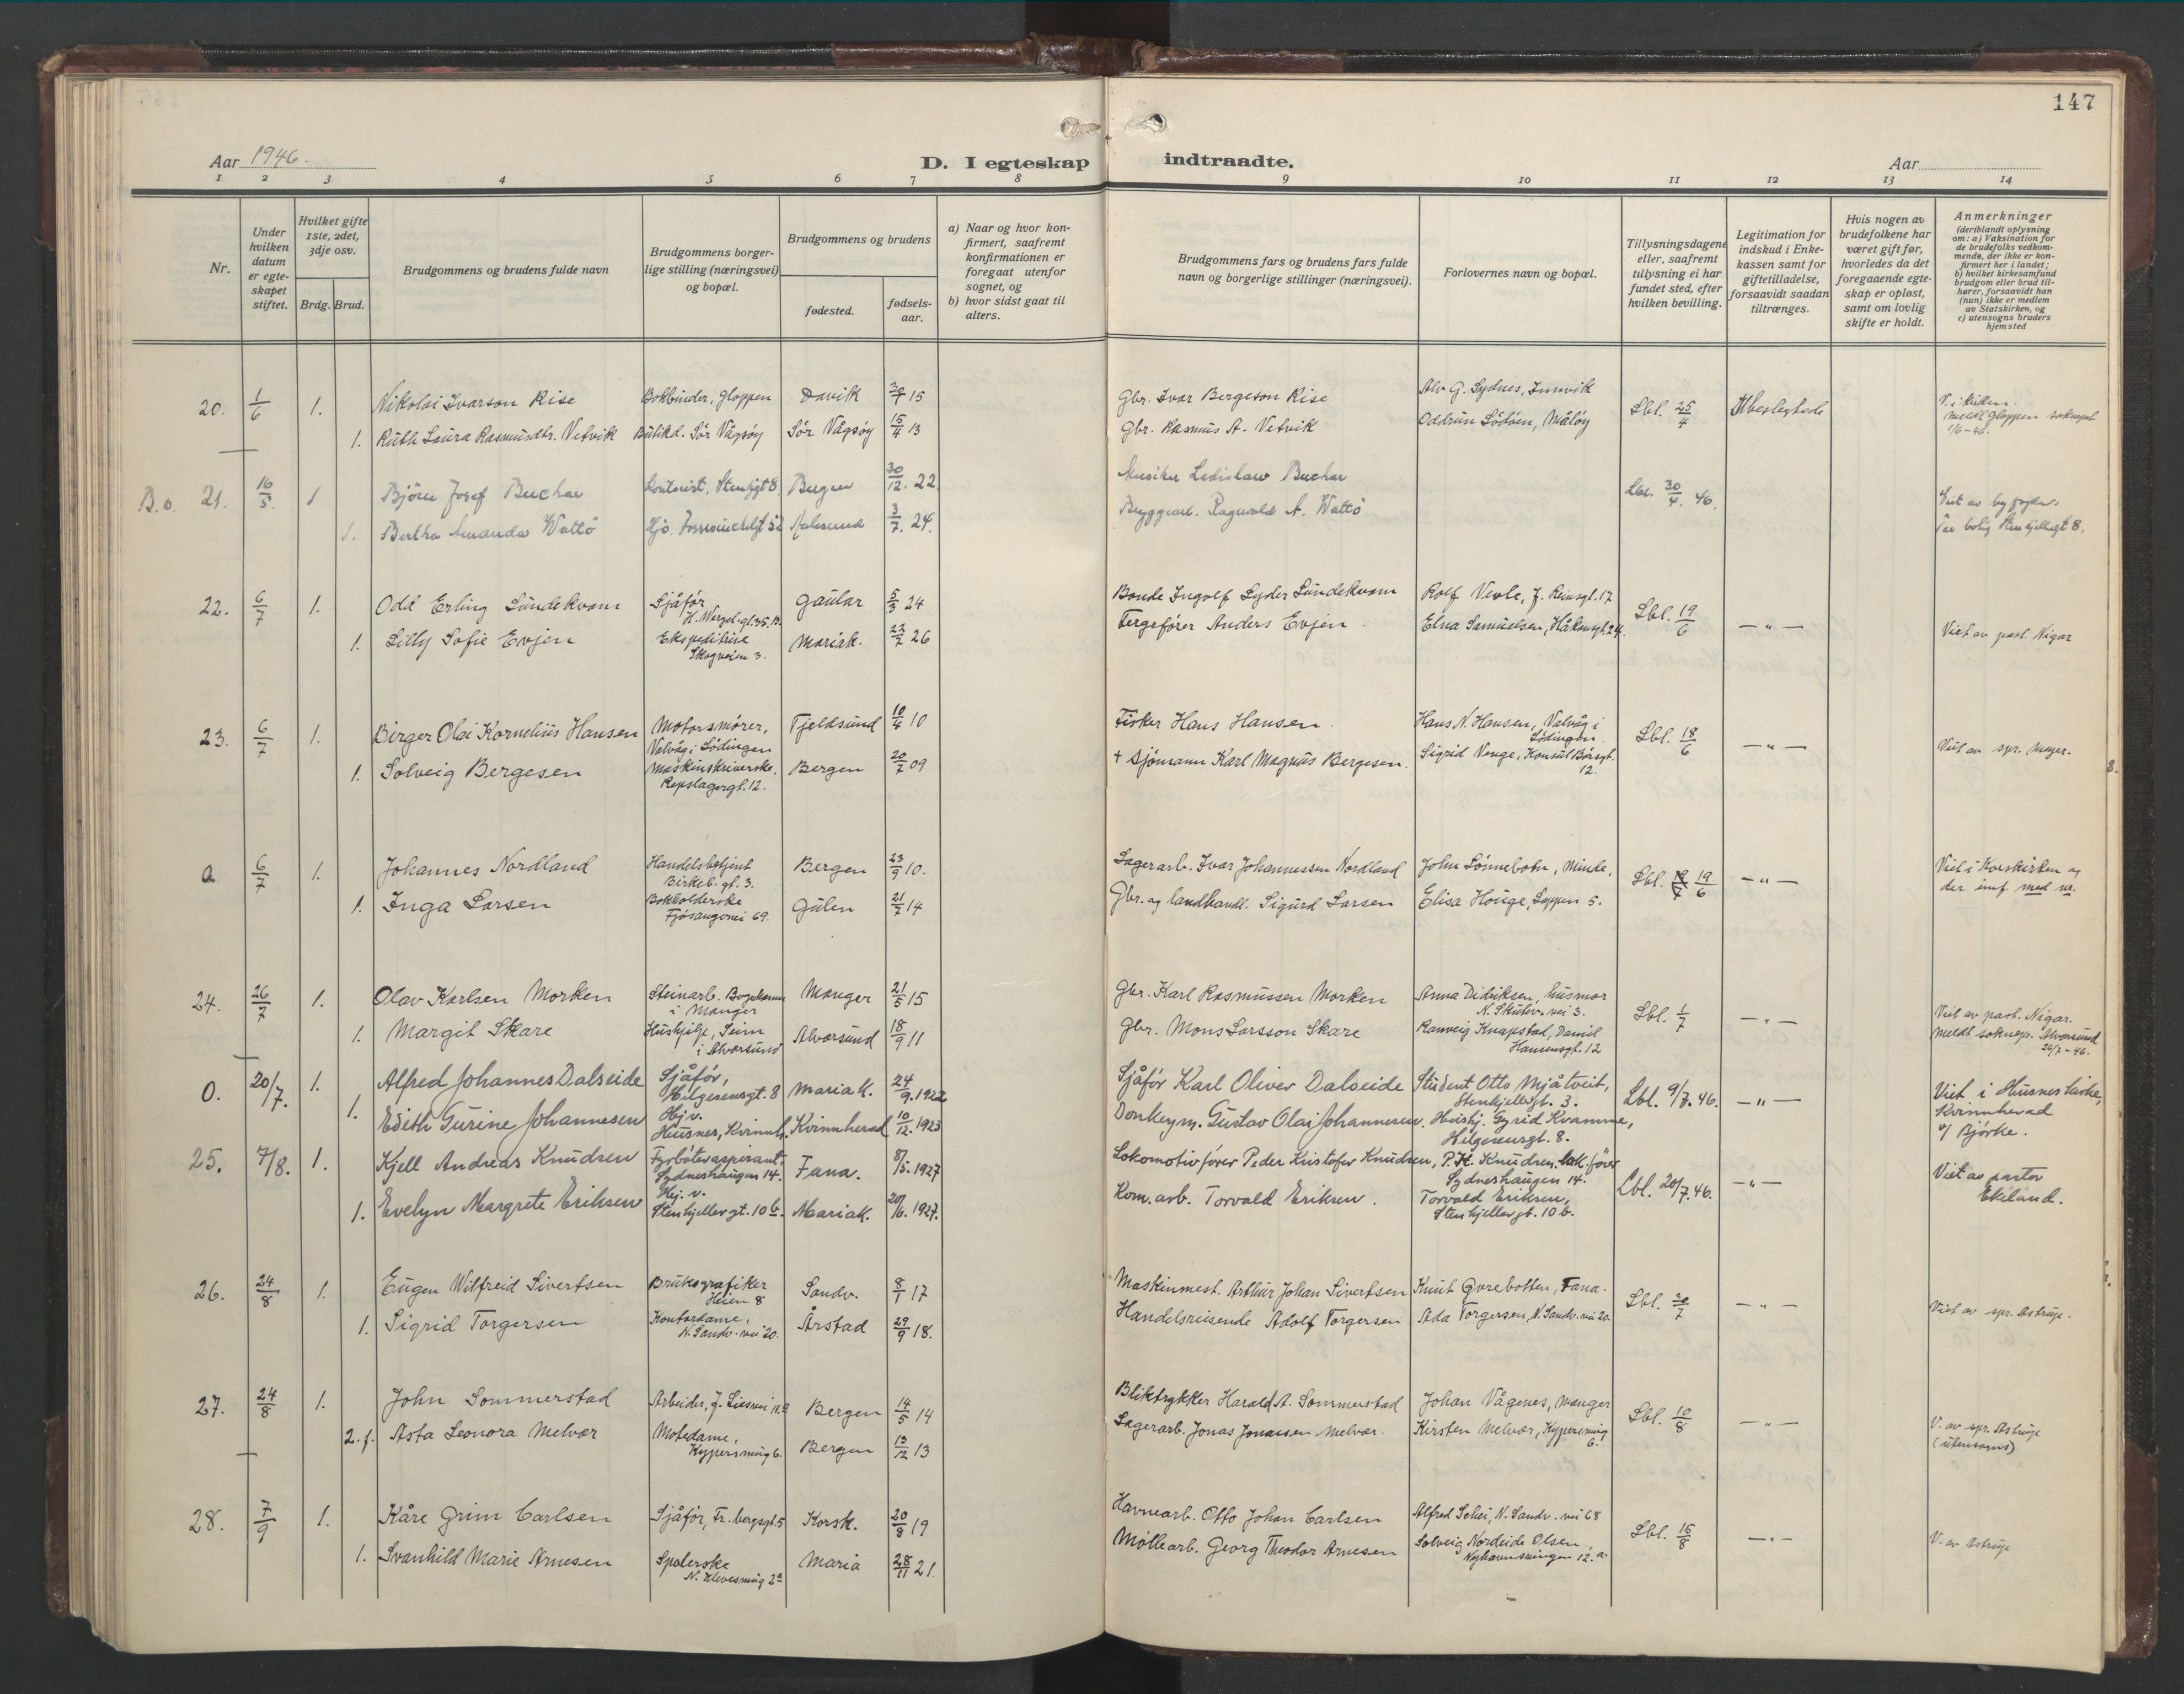 147
Aar 1946.
D. I egteskap indtraadte.
Aar
1 2 3 4 5 6 7 8 9 10 11 12 13 14
Nr.
Under hvilken datum er egte-skapet stiftet.
Hvilket gifte 1ste, 2det, 3dje osv.
Brdg. Brud.
Brudgommens og brudens fulde navn
Brudgommens borger-lige stilling (næringsvei) og bopæl.
Brudgommens og brudens
fødested.
fødsels-aar.
a) Naar og hvor kon-firmert, saafremt konfirmationen er foregaat utenfor sognet, og
b) hvor sidst gaat til alters.
Brudgommens fars og brudens fars fulde navn og borgerlige stillinger (næringsvei).
Forlovernes navn og bopæl.
Tillysningsdagene eller, saafremt tillysning ei har fundet sted, efter hvilken bevilling.
Legitimation for indskud i Enke-kassen samt for giftetilladelse, forsaavidt saadan tiltrænges.
Hvis nogen av brudefolkene har været gift før, hvorledes da det foregaaende egte-skap er opløst, samt om lovlig skifte er holdt.
Anmerkninger (deriblandt oplysning om: a) Vaksination for de brudefolks vedkom-mende, der ikke er kon-firmert her i landet; b) hvilket kirkesamfund brudgom eller brud til-hører, forsaavidt han (hun) ikke er medlem av Statskirken, og c) utensogns bruders hjemsted
20. 1/6 1. Nikolai Ivarson Rise Bokbinder, Gloppen Davik 15 Gbr. Ivar Bergeson Rise Alv G. Sydnes, Innvik Lbl. 25/4 Ubeslegtede V. i kirken.
meldt Gloppen sokneprest 1/6-46.
1. Ruth Laura Rasmusdtr. Vetvik Butikd. Sör Vågsöy Sör Vågsöy 15/4 13 Gbr. Rasmus A. Vetvik Oddrun Lödöen, Målöy
B.o. 21. 16/5. 1 Björn Josef Buchar Kontorist, Stenkjgt 8 Bergen 30/12. 22 Musiker Ledislaw Buchar Lbl. 30/4. 46. Viet av byfogden.
Før bolig Stenkjellergt 8.
1. Bertha Amanda Wattö Aalesund 3/7. 24. Bryggearb. Ragnvald A. Wattö
22. 6/7 1. Odd Erling Sundekvam Sjåfør
H. Wergel. gt. 35. B. Gaular 5/3 24 Bonde Ingolf Syder Sundekvam Rolf Vevle, J. Reinsgt. 17 Lbl. 19/6 — " — Viet av past. Nigar
1. Lilly Sofie Evjen Ekspeditrise
Skogveien 3. Mariak. 22/7 26 Fergefører Anders Evjen Elna Samuelsen, Håkonsgt. 24.
23. 6/7 1. Birger Olai Kornelius Hansen Motorsmører,
Valvåg i Lödingen Tjeldsund 10/4 10 Fisker Hans Hansen Hans N. Hansen, Valvåg i Lödingen. Lbl. 18/6 — " — Viet av spr. Meyer.
1. Solveig Bergesen Maskinskriverske.
Repslagergt. 12. Bergen 20/7 09 + Sjömann Karl Magnus Bergesen. Sigrid Venge, Konsul Börsgt. 12.
a 6/7 1. Johannes Nordland Handelsbetjent
Birkeb. gt. 3. Bergen 23/9 10. Lagerarb. Ivar Johannessen Nordland John Lønnebotn, Minde, Lbl. 19/6 — " — Viet i Korskirken og
der innf. med nr.
1. Inga Larsen Bokholderske
Fjösangervei 69. Gulen 21/7 14 Gbr. og landhandl. Sigurd Larsen Elisa Houge, Lappen 5.
24. 26/7 1. Olav Karlsen Morken Steinarb.
i Manger Manger 21/5 15 Gbr. Karl Rasmussen Morken Anna Didriksen, husmor
N. Skutev. vei 3. Lbl. 1/7 — " — Viet av past. Nigar.
meldt soknepr. Alversund
26/7-46.
1. Margit Skare Hushjelp, Seim
i Alversund Alversund 18/9 11 Gbr. Mons Larsson Skare Ranveig Knapstad, Daniel
Hansensgt. 12
O. 20/7. 1. Alfred Johannes Dalseide Sjåfør,
Helgesensgt. 8 Mariak. 24/9. 1922 Sjåfør Karl Oliver Dalseide Student Otto Mjåtveit,
Stenkjellergt. 3. Lbl. 9/7. 46. — " — Viet i Husnes kirke,
Kvinnherad
v/ Bjørke.
1. Edith Gurine Johannesen Hj.v.
Husnes, Kvinnh. Kvinnherad 10/12. 1923 Donkeym. Gustav Olai Johannesen. Hushj. Gyrid Kvamme,
Helgesensgt. 8.
25. 7/8. 1. Kjell Andreas Knudsen Fyrbøteraspirant,
Sydneshaugen 14. Fana. 8/5. 1927 Lokomotivfører Peder Kristofer Knudsen, P. K. Knudsen, lok. fører
Sydneshaugen 14. Lbl. 20/7. 46. — " — Viet av pastor
Ekeland.
1. Evelyn Margrete Eriksen Hj. v.
Stenkjellergt. 10 b. Mariak. 20/6. 1927. Kom. arb. Torvald Eriksen. Torvald Eriksen,
Stenkjellergt. 10 b.
26. 24/8 1. Eugen Wilfreid Sivertsen Bruksgrafiker
Heien 8 Sandv. 8/1 17 Maskinmest. Arthur Johan Sivertsen Knut Gyrebotten, Fana. Lbl. 30/7 — " — Viet av spr. Astrup.
1. Sigrid Torgersen Kontordame,
N. Sandv. vei 20. Årstad 29/9 18. Handelsreisende Adolf Torgersen Ada Torgersen, N. Sandv. vei 20.
27. 24/8 1. John Sommerstad Arbeider, J. Liesvei Bergen 14/5 14 Bliktrykker Harald A. Sommerstad Johan Vågenes, Manger Lbl. 10/8 — " — V. av spr. Astrup
(utensogns)
2. f. Asta Leonora Melvær Motedame,
Kypersmug 6. Bergen 13/12 13 Lagerarb. Jonas Jonassen Melvær. Kirsten Melvær, Kypersmug
6.
28. 7/9 1. Kåre Grim Carlsen Sjåför, Fr. bergsgt. 5 Korsk. 20/8 19 Havnearb. Otto Johan Carlsen Alfred Schei, N. Sandv. vei 68 Lbl. 15/8 — " — V. av Astrup
1. Svanhild Marie Arnesen Spolerske
N. Klevesmug 2a Maria 28/11 21. Møllearb. Georg Theodor Arnesen Solveig Nordeide Olsen,
Nyhavnsvingen 12. a.